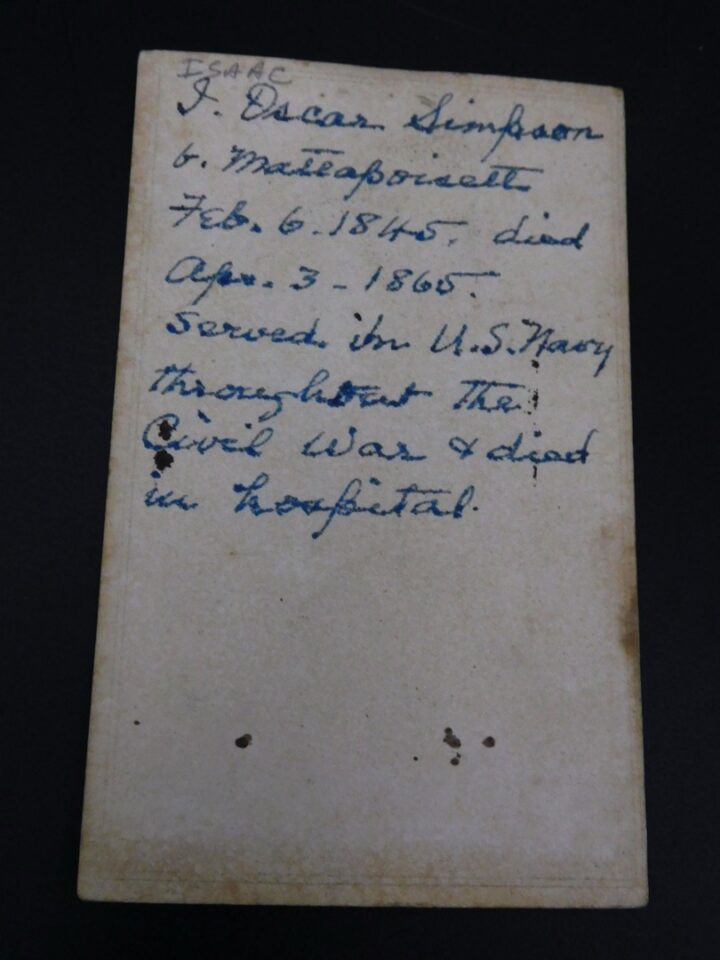 ISAAC
I. Oscar Simpson
b. Mattapoisett
Feb. 6. 1845. died
Apr. 3 - 1865.
Served in U.S. Navy
throughout the
Civil War & died
in hospital.